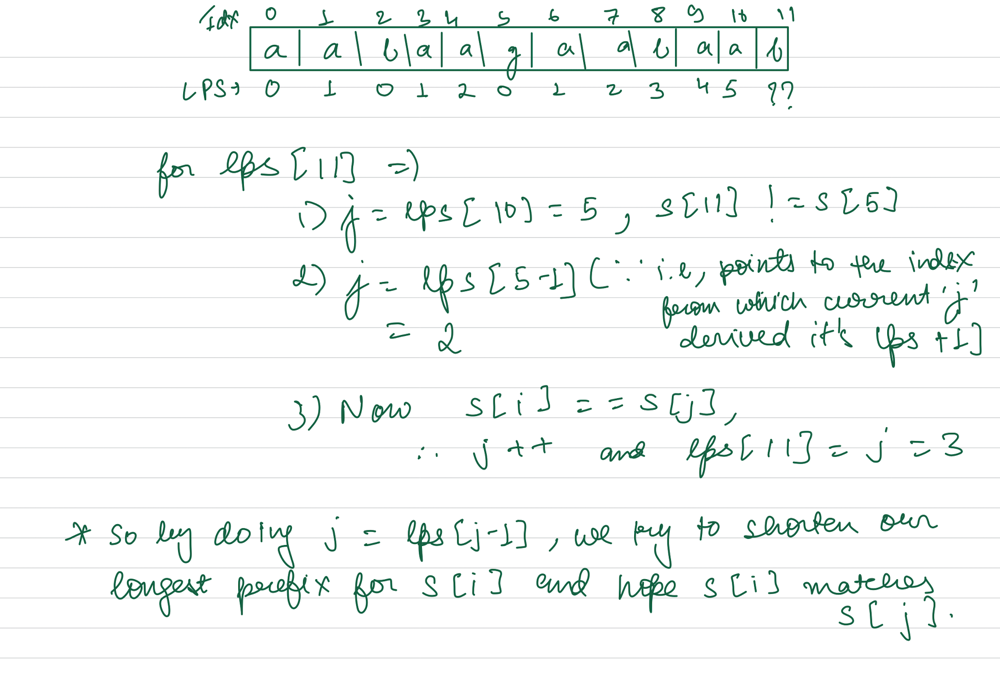 Idx 0 1 2 3 4 5 6 7 8 9 10 11
a a b a a g a a b a a b
LPS→ 0 1 0 1 2 0 1 2 3 4 5 ??
for lps [11] =>
1) j = lps [10] = 5 , s[11] != s[5]
2) j = lps [5-1] (∵ i.e, points to the index
from which current 'j'
= 2 derived it's lps +1]
3) Now s[i] == s[j],
∴ j++ and lps[11] = j = 3
* So by doing j = lps [j-1] , we try to shorten our
longest prefix for s[i] and hope s[i] matches
s[j].